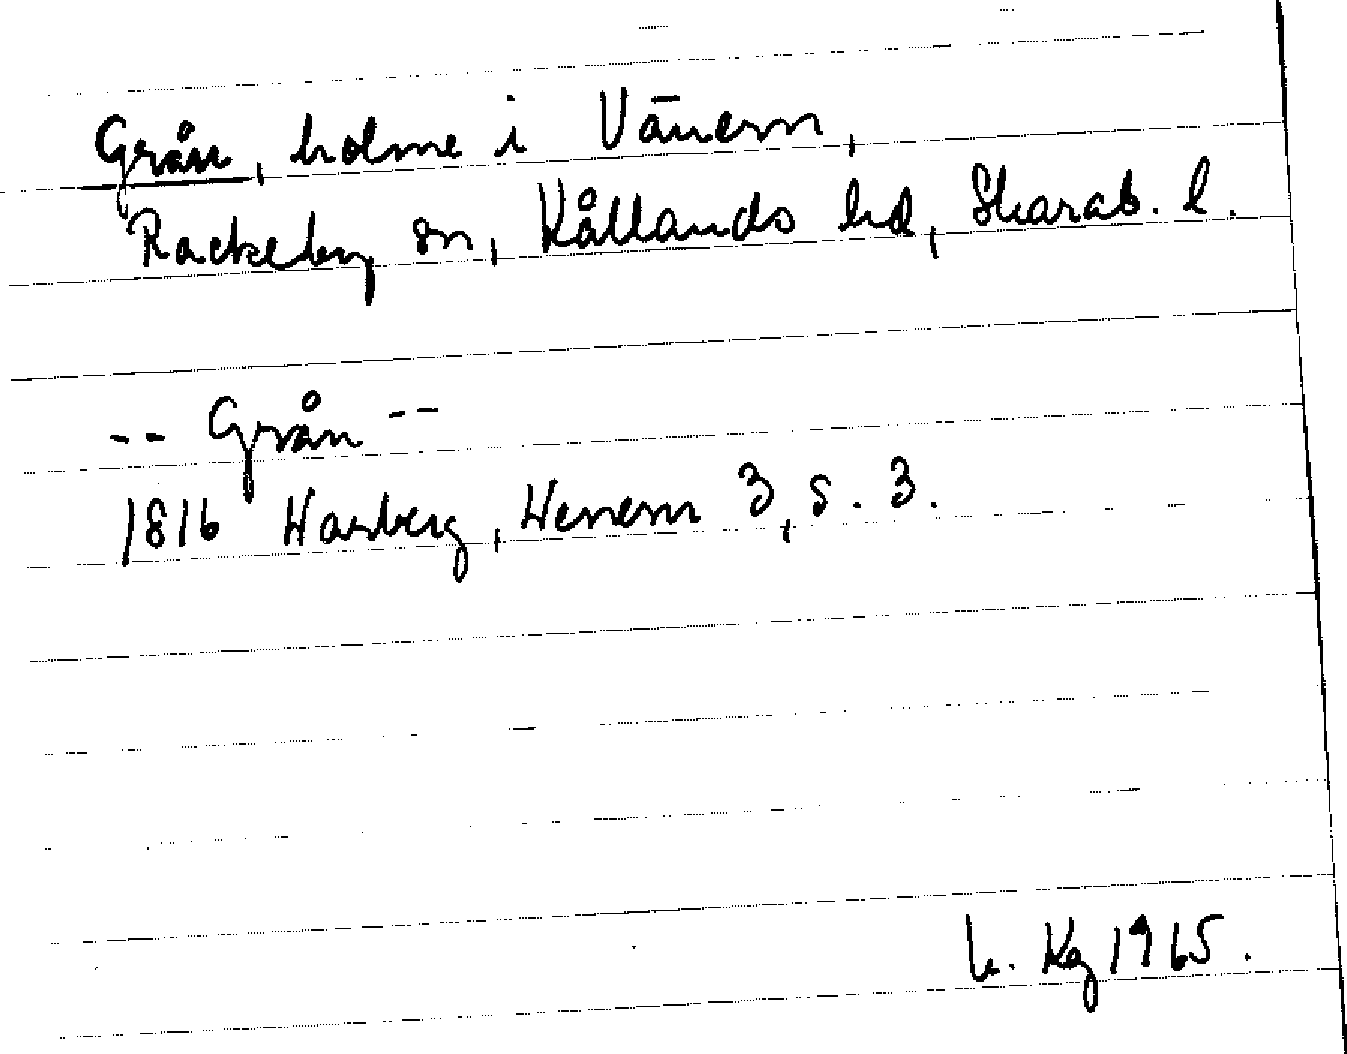 Grån, holme i Vänern,
Rackeby sn, Kållands hd, Skarab. l.
-- Grån --
1816 Warberg, Wenern 3, s. 3.
h. Kg 1965.